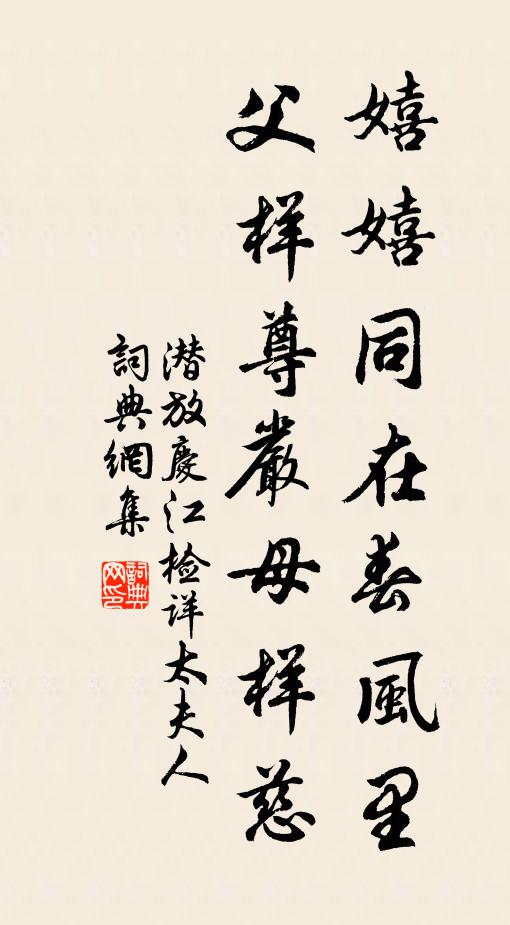 嬉嬉同在春風里
父样尊嚴母样慈
潜放慶江检详太夫人
詞典網集
詞典网印